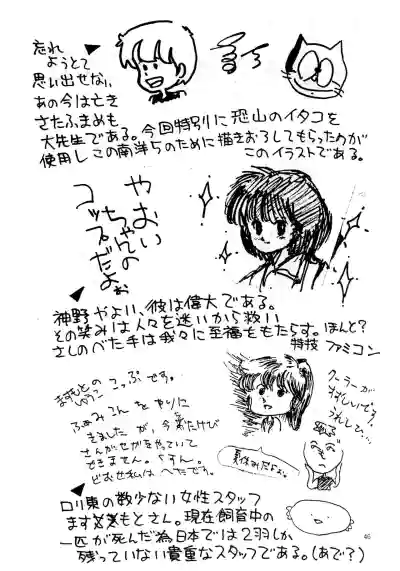 忘れ
ようとて
思い出せない
あの今は亡き
さたふまめも
大先生である。今回特別に恐山のイタコを
使用しこの南洋5のために描きおろしてもらったのが
このイラストである。
やおい
ちゃんの
コップだよぉ
神野やよい、彼は偉大である。
その笑みは人々を迷いから救い
さしのべた手は我々に至福をもたらす。ほんと?
特技 ファミコン
ますもとの
こっぷ です。
ふぁみこんをヤリに
きましたが、今
できません。
どおせ私はへたです。
クーラーが
すずしいです。
うれして、…
夏休みだなぁ。
ロリ東の数少ない女性スタッフ
ます もとさん。現在飼育中の
一匹が死んだ為日本では2羽しか
残っていない貴重なスタッフである。(あで?)
46